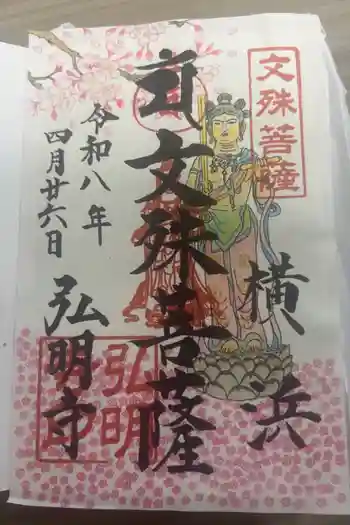 文殊菩薩
横浜
文殊菩薩
令和八年
四月廿六日
弘明寺
弘明